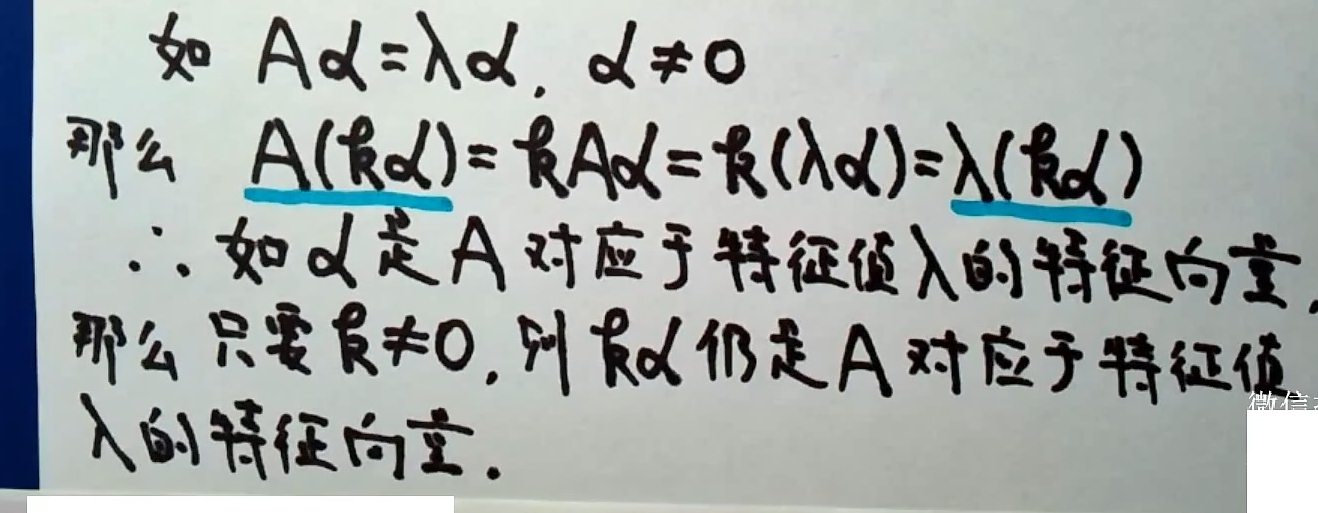 如 Aα=λα, α≠0
那么 A(kα)=kAα=k(λα)=λ(kα)
∴ 如α是A对应于特征值λ的特征向量,
那么只要k≠0,则kα仍是A对应于特征值
微信
λ的特征向量.